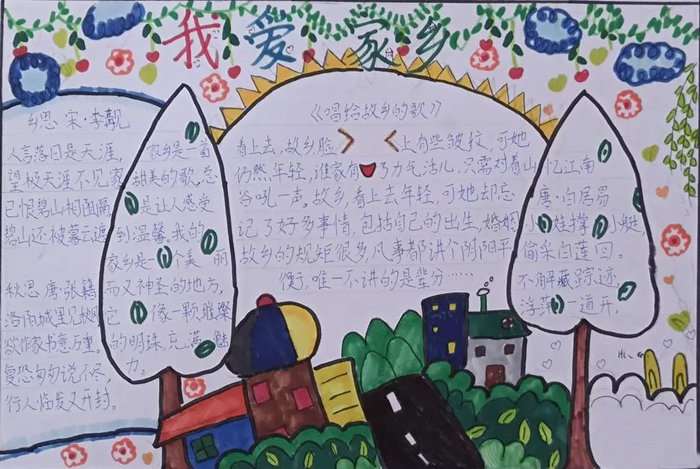 我爱家乡
乡思·宋·李觏
人言落日是天涯,
望极天涯不见家
已恨碧山相阻隔
碧山还被暮云遮
秋思·唐·张籍
洛阳城里见秋风
欲作家书意万重。
复恐匆匆说不尽,
行人临发又开封。
家乡是一首
甜美的歌,总
是让人感受
到温馨。我的
家乡是一个美丽
而又神圣的地方,
它像一颗璀璨
的明珠,充满魅
力。
《唱给故乡的歌》
看上去,故乡脸上有些皱纹,可她
仍然年轻,谁家有了力气活儿,只需对着山
谷吼一声。故乡,看上去年轻,可她却忘
记了好多事情,包括自己的出生,婚姻
故乡的规矩很多,凡事都讲个阴阳平
衡,唯一不讲的是辈分……
忆江南
唐·白居易
小娃撑小艇,
偷采白莲回。
不解藏踪迹
浮萍一道开。
Hi